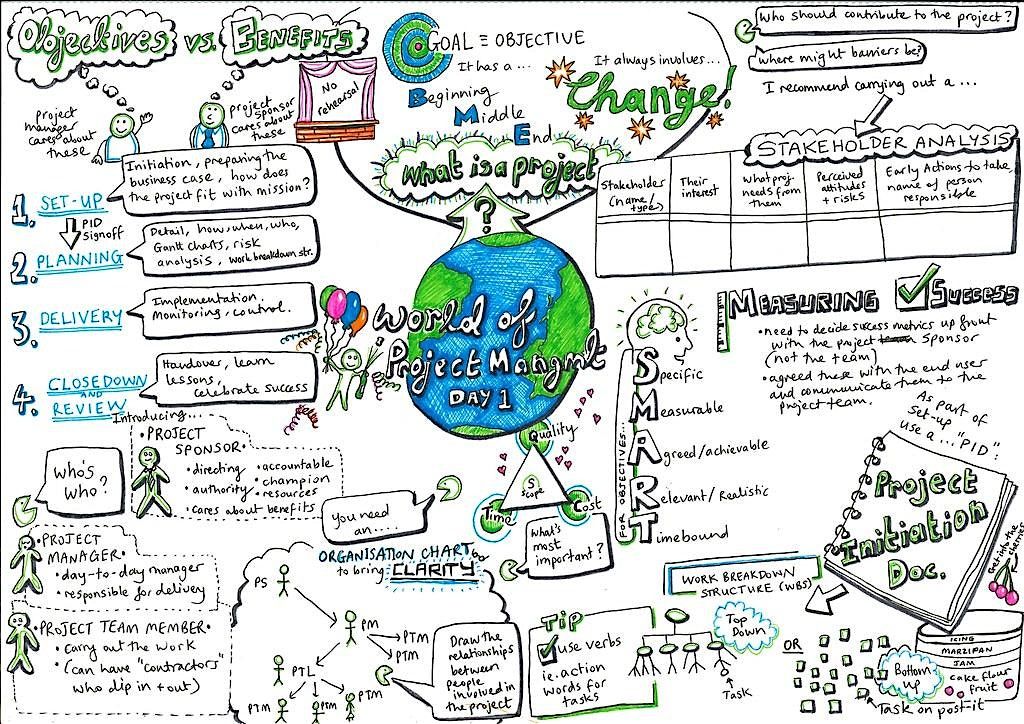 Objectives vs. BENEFITS
project
manager
cares about
these
project
sponsor
cares about
these
No
rehearsal
GOAL ≡ OBJECTIVE
It has a ...
Beginning
Middle
End
It always involves...
Change!
what is a project
?
Who should contribute to the project?
where might barriers be?
I recommend carrying out a ...
STAKEHOLDER ANALYSIS
Stakeholder
(name/
type)
Their
interest
what proj.
needs from
them
Perceived
attitudes
+ risks
Early Actions to take,
name of person
responsible
1. SET-UP
Initiation, preparing the
business case, how does
the project fit with mission?
PID
signoff
2. PLANNING
Detail, how, when, who,
Gantt charts, risk
analysis, work breakdown str.
3. DELIVERY
Implementation.
Monitoring, control.
4. CLOSEDOWN
AND
REVIEW
Handover, learn
lessons,
celebrate success
World of
Project Mangmt
DAY 1
Quality
Scope
Time
Cost
What's
most
important?
FOR OBJECTIVES...
Specific
Measurable
Agreed/achievable
Relevant/Realistic
Timebound
MEASURING SUCCESS
• need to decide success metrics up front
with the project sponsor
(not the team)
• agreed these with the end user
and communicate them to the
project team.
As part of
set-up
use a ... "PID":
Project
Initiation
Doc.
Get into the
Who's
who?
Introducing...
• PROJECT
SPONSOR
• directing
• authority
• accountable
• champion
• resources
• cares about benefits
• PROJECT
MANAGER •
• day-to-day manager
• responsible for delivery
• PROJECT TEAM MEMBER •
• carry out the work
• (can have "contractors"
who dip in + out)
You need
an ....
ORGANISATION CHART
to bring CLARITY
PS
PM
PTM
PTM
PTL
PTM
PTM
PTM
Draw the
relationships
between
people
involved in
the project
WORK BREAKDOWN
STRUCTURE (WBS)
TIP
use verbs
ie. action
words for
tasks
Top
Down
Task
OR
Bottom
up
Task on post-it
ICING
MARZIPAN
JAM
cake flour
fruit